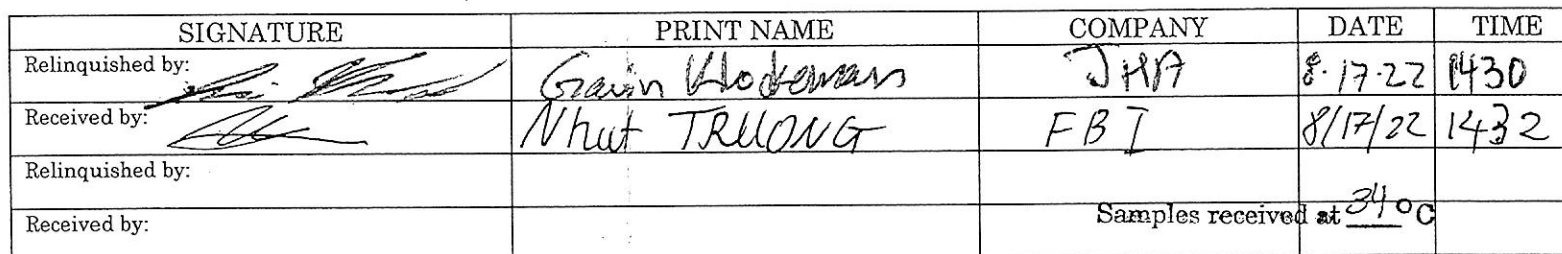 SIGNATURE PRINT NAME COMPANY DATE TIME
Relinquished by: Gavin JHA 8-17-22 1430
Received by: Nhut TRUONG FBI 8/17/22 1432
Relinquished by:
Samples received at 34 °C
Received by: